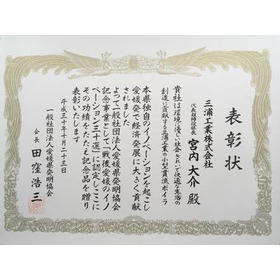 表彰状
三浦工業株式会社
代表取締役社長 宮内 大介 殿
貴社は環境に優しい社会、きれいで快適な生活の
創造に貢献する三浦工業の小型貫流ボイラ
本県独自のイノベーションを起こし
愛媛発で経済発展に大きく貢献
されました
よって一般社団法人愛媛県発明協会
記念事業として「戦後愛媛のイノ
ベーション三十選」に認定しここに
その功績をたたえ記念品を贈り
表彰いたします
平成三十年十月二十三日
一般社団法人愛媛県発明協会
会長 田窪浩三